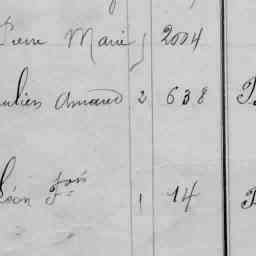 Pierre Marie } 2004
Julien Amand 2 638
Léon Fois 1 14